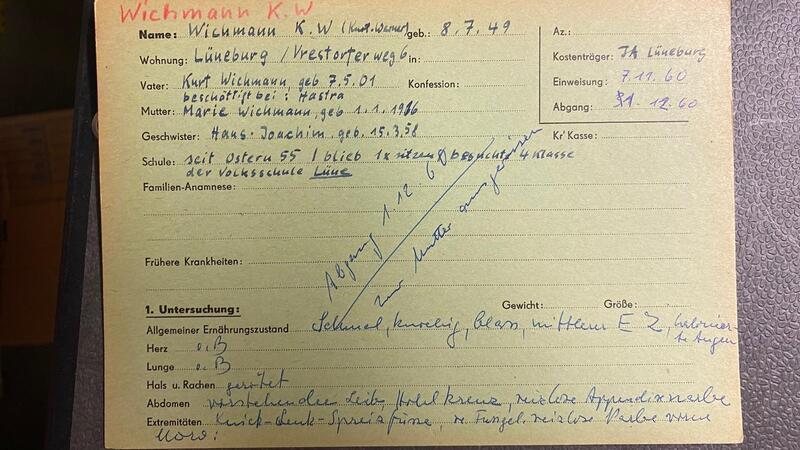 Wichmann K.W
Name: Wichmann K.W (Kurt-Werner) geb.: 8.7.49
Az.:
Wohnung: Lüneburg / Vrestorferweg 6 in:
Kostenträger: JA Lüneburg
Vater: Kurt Wichmann, geb 7.5.01 Konfession:
beschäftigt bei: Hastra
Einweisung: 7.11.60
Mutter: Marie Wichmann, geb 1.1.1916
Abgang: 1.12.60
Geschwister: Hans-Joachim, geb. 15.3.58
Kr'Kasse:
Schule: seit Ostern 55 / blieb 1x sitzen / besucht 4 Klasse
der Volksschule Lüne
Familien-Anamnese:
Abgang 1.12.60
zur Mutter
Frühere Krankheiten:
1. Untersuchung: Gewicht: Größe:
Allgemeiner Ernährungszustand Schmal, blass, mittlerer E Z, Augen
Herz o.B
Lunge o.B
Hals u. Rachen gerötet
Abdomen vorstehender Leib, Hohlkreuz, reizlose Appendixnarbe
Extremitäten Knick-Senk-Spreizfüsse, reizlose Narbe